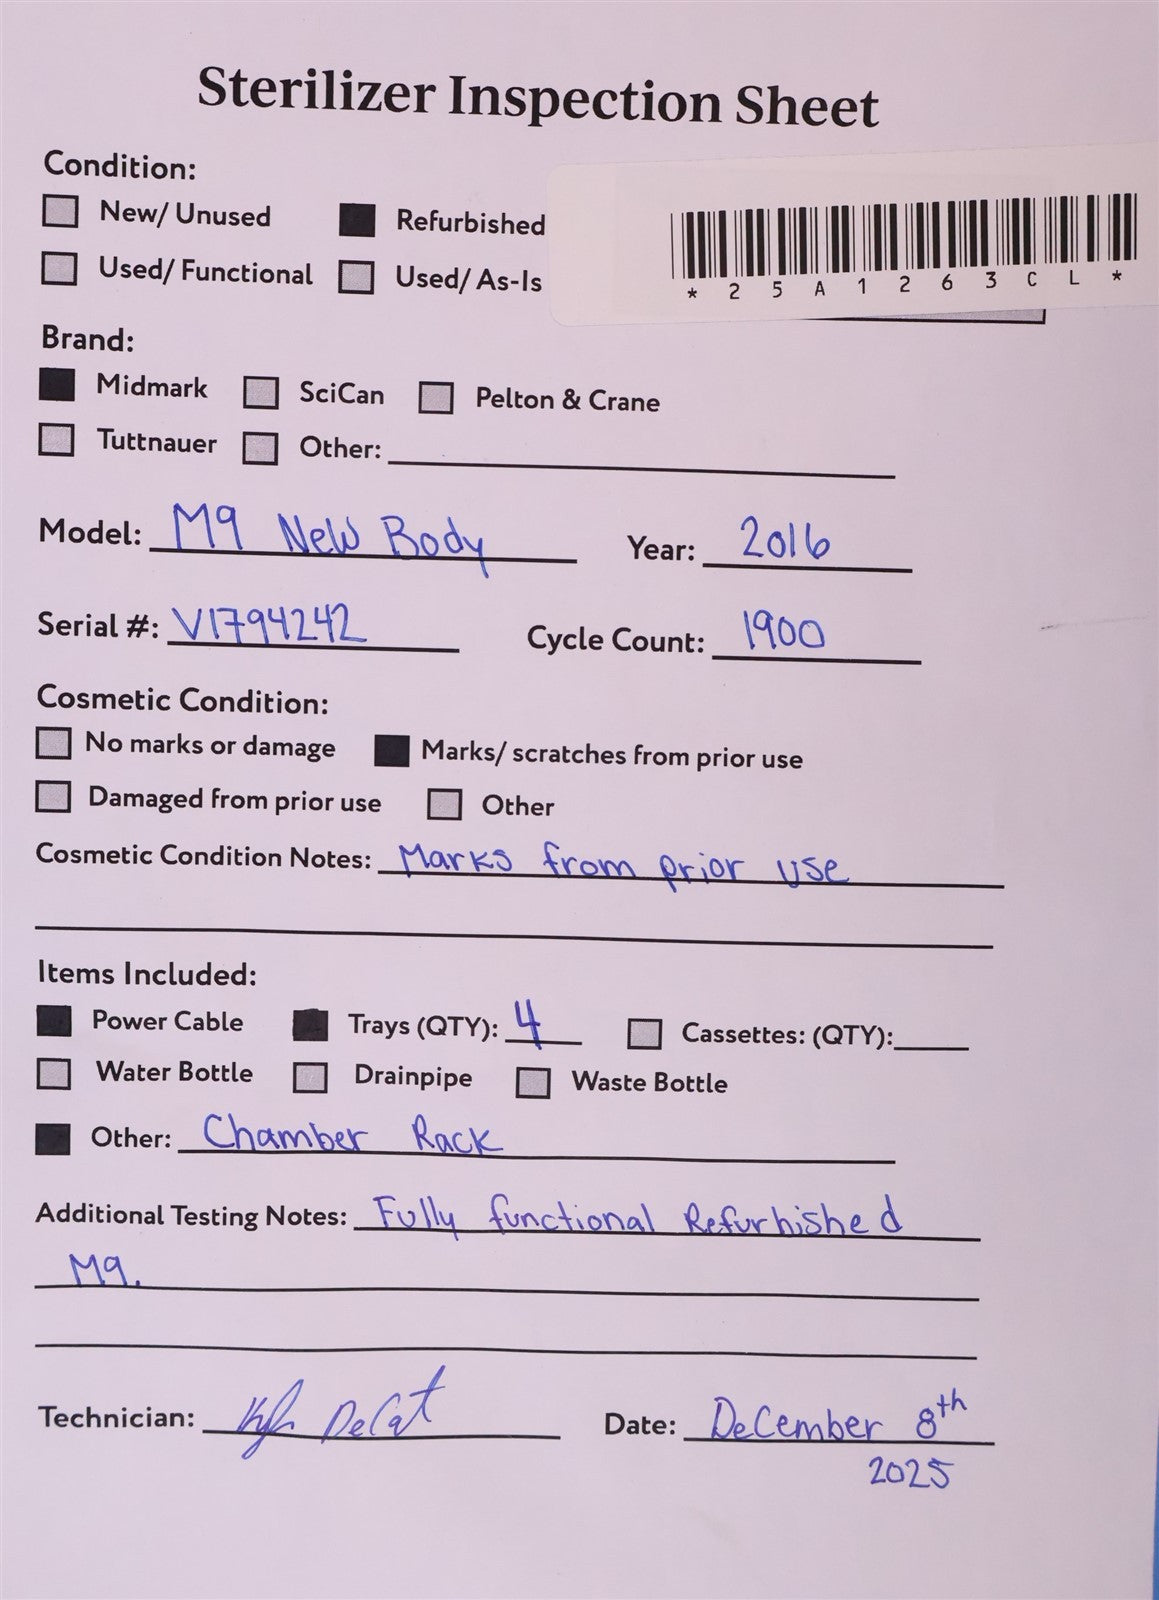 Sterilizer Inspection Sheet
Condition:
New/ Unused Refurbished
Used/ Functional Used/ As-Is
*25A1263CL*
Brand:
Midmark SciCan Pelton & Crane
Tuttnauer Other:
Model: M9 New Body Year: 2016
Serial #: V1794242 Cycle Count: 1900
Cosmetic Condition:
No marks or damage Marks/ scratches from prior use
Damaged from prior use Other
Cosmetic Condition Notes: Marks from prior use
Items Included:
Power Cable Trays (QTY): 4 Cassettes: (QTY):
Water Bottle Drainpipe Waste Bottle
Other: Chamber Rack
Additional Testing Notes: Fully functional Refurbished
M9.
Technician: DeCat Date: December 8th
2025